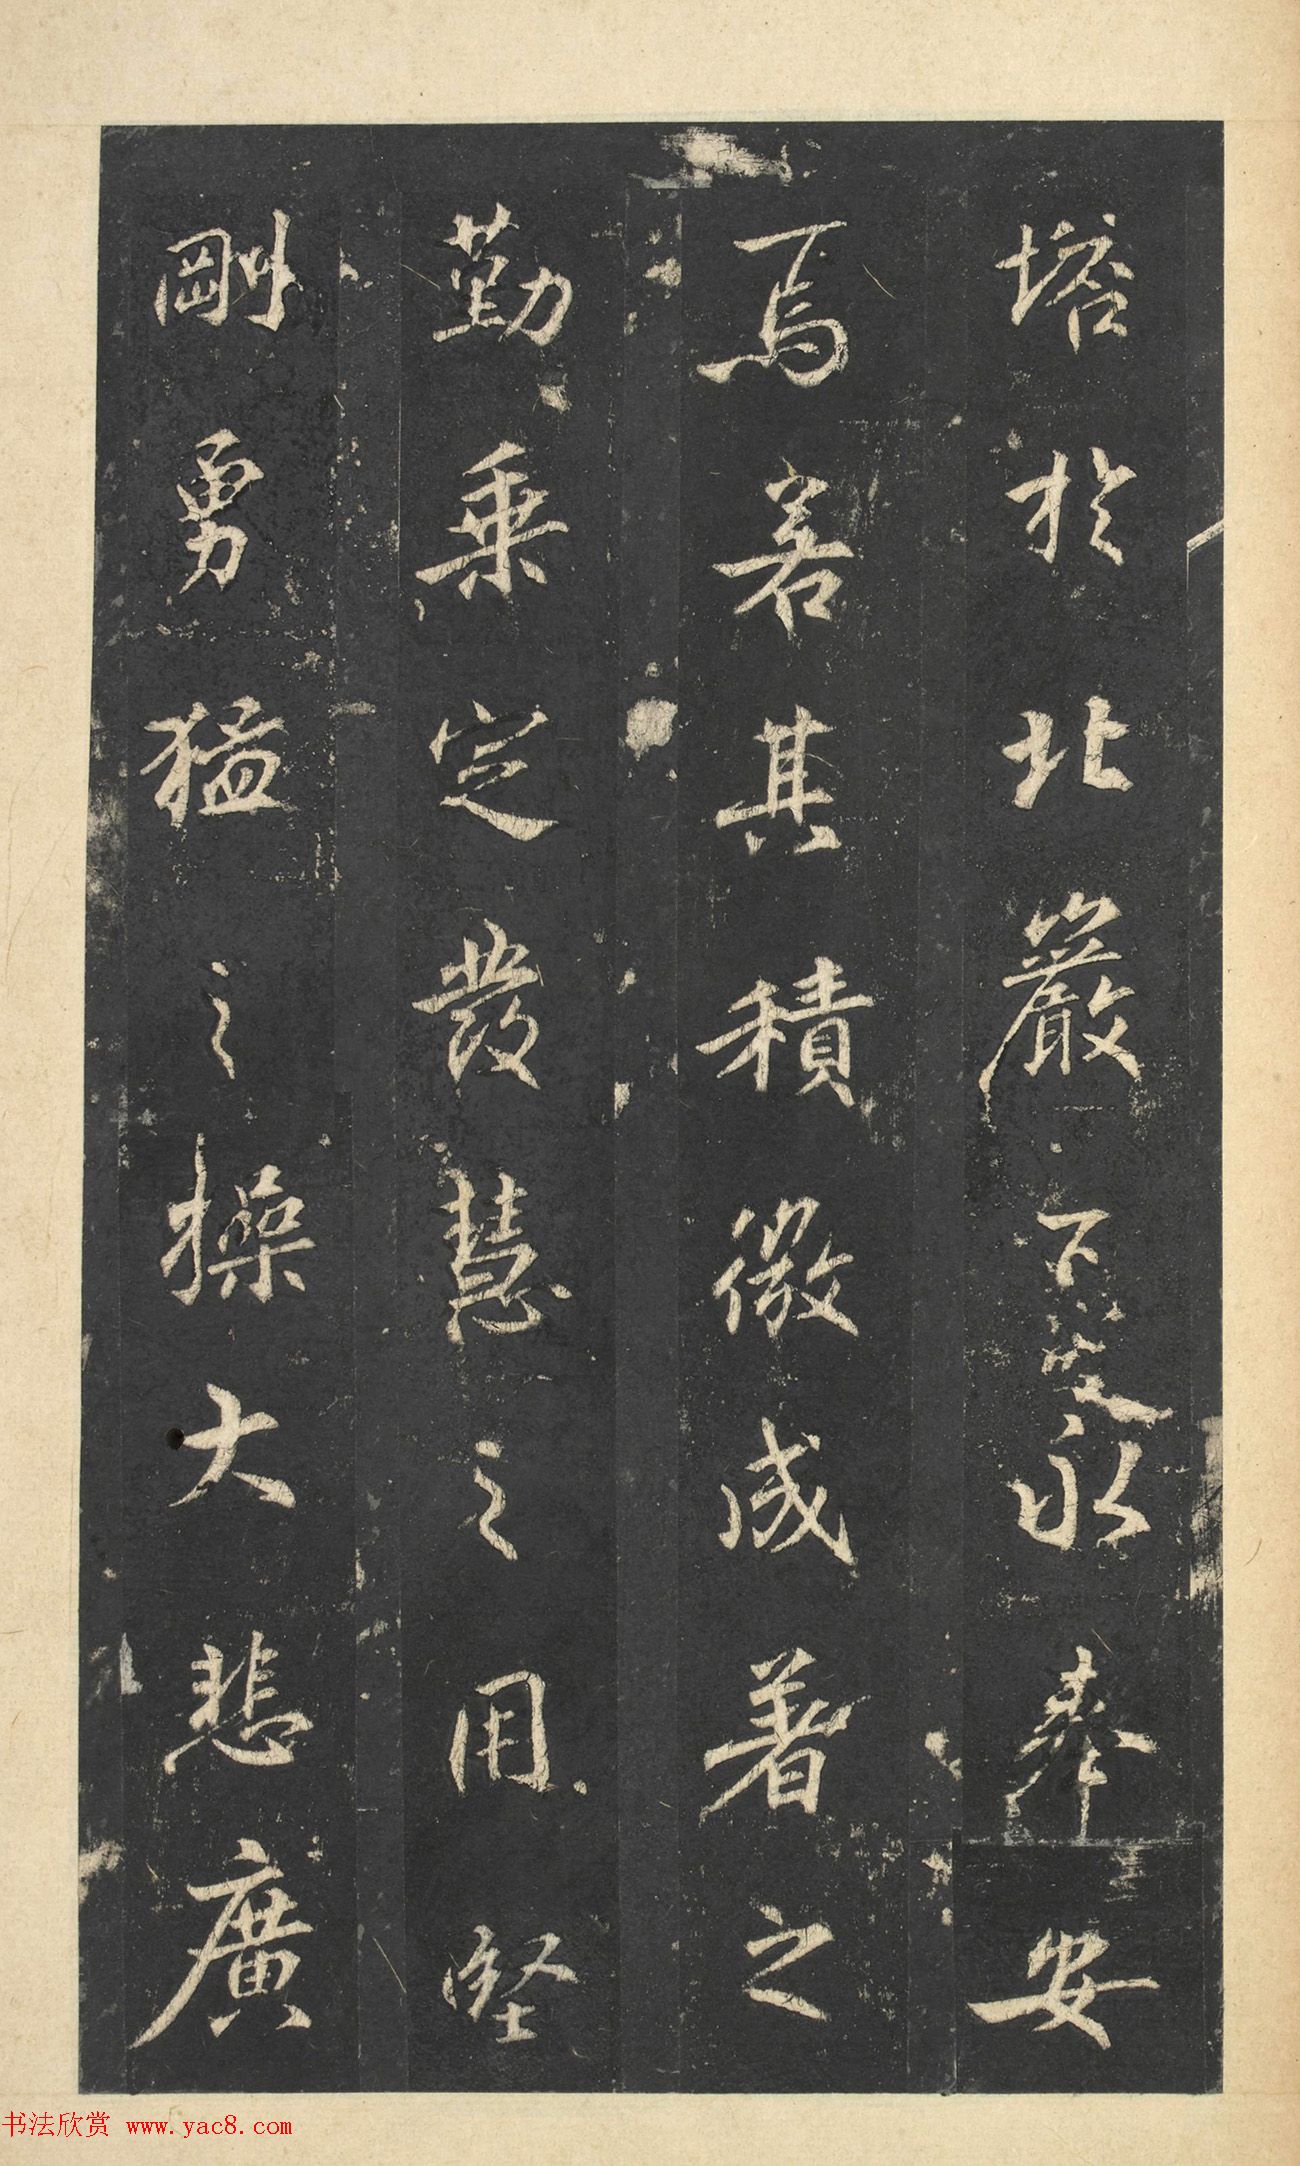 塔於北巖下笅永奉安
焉若其積微成著之
勤乗定發慧之用堅
剛勇猛之操大悲廣
书法欣赏 www.yac8.com